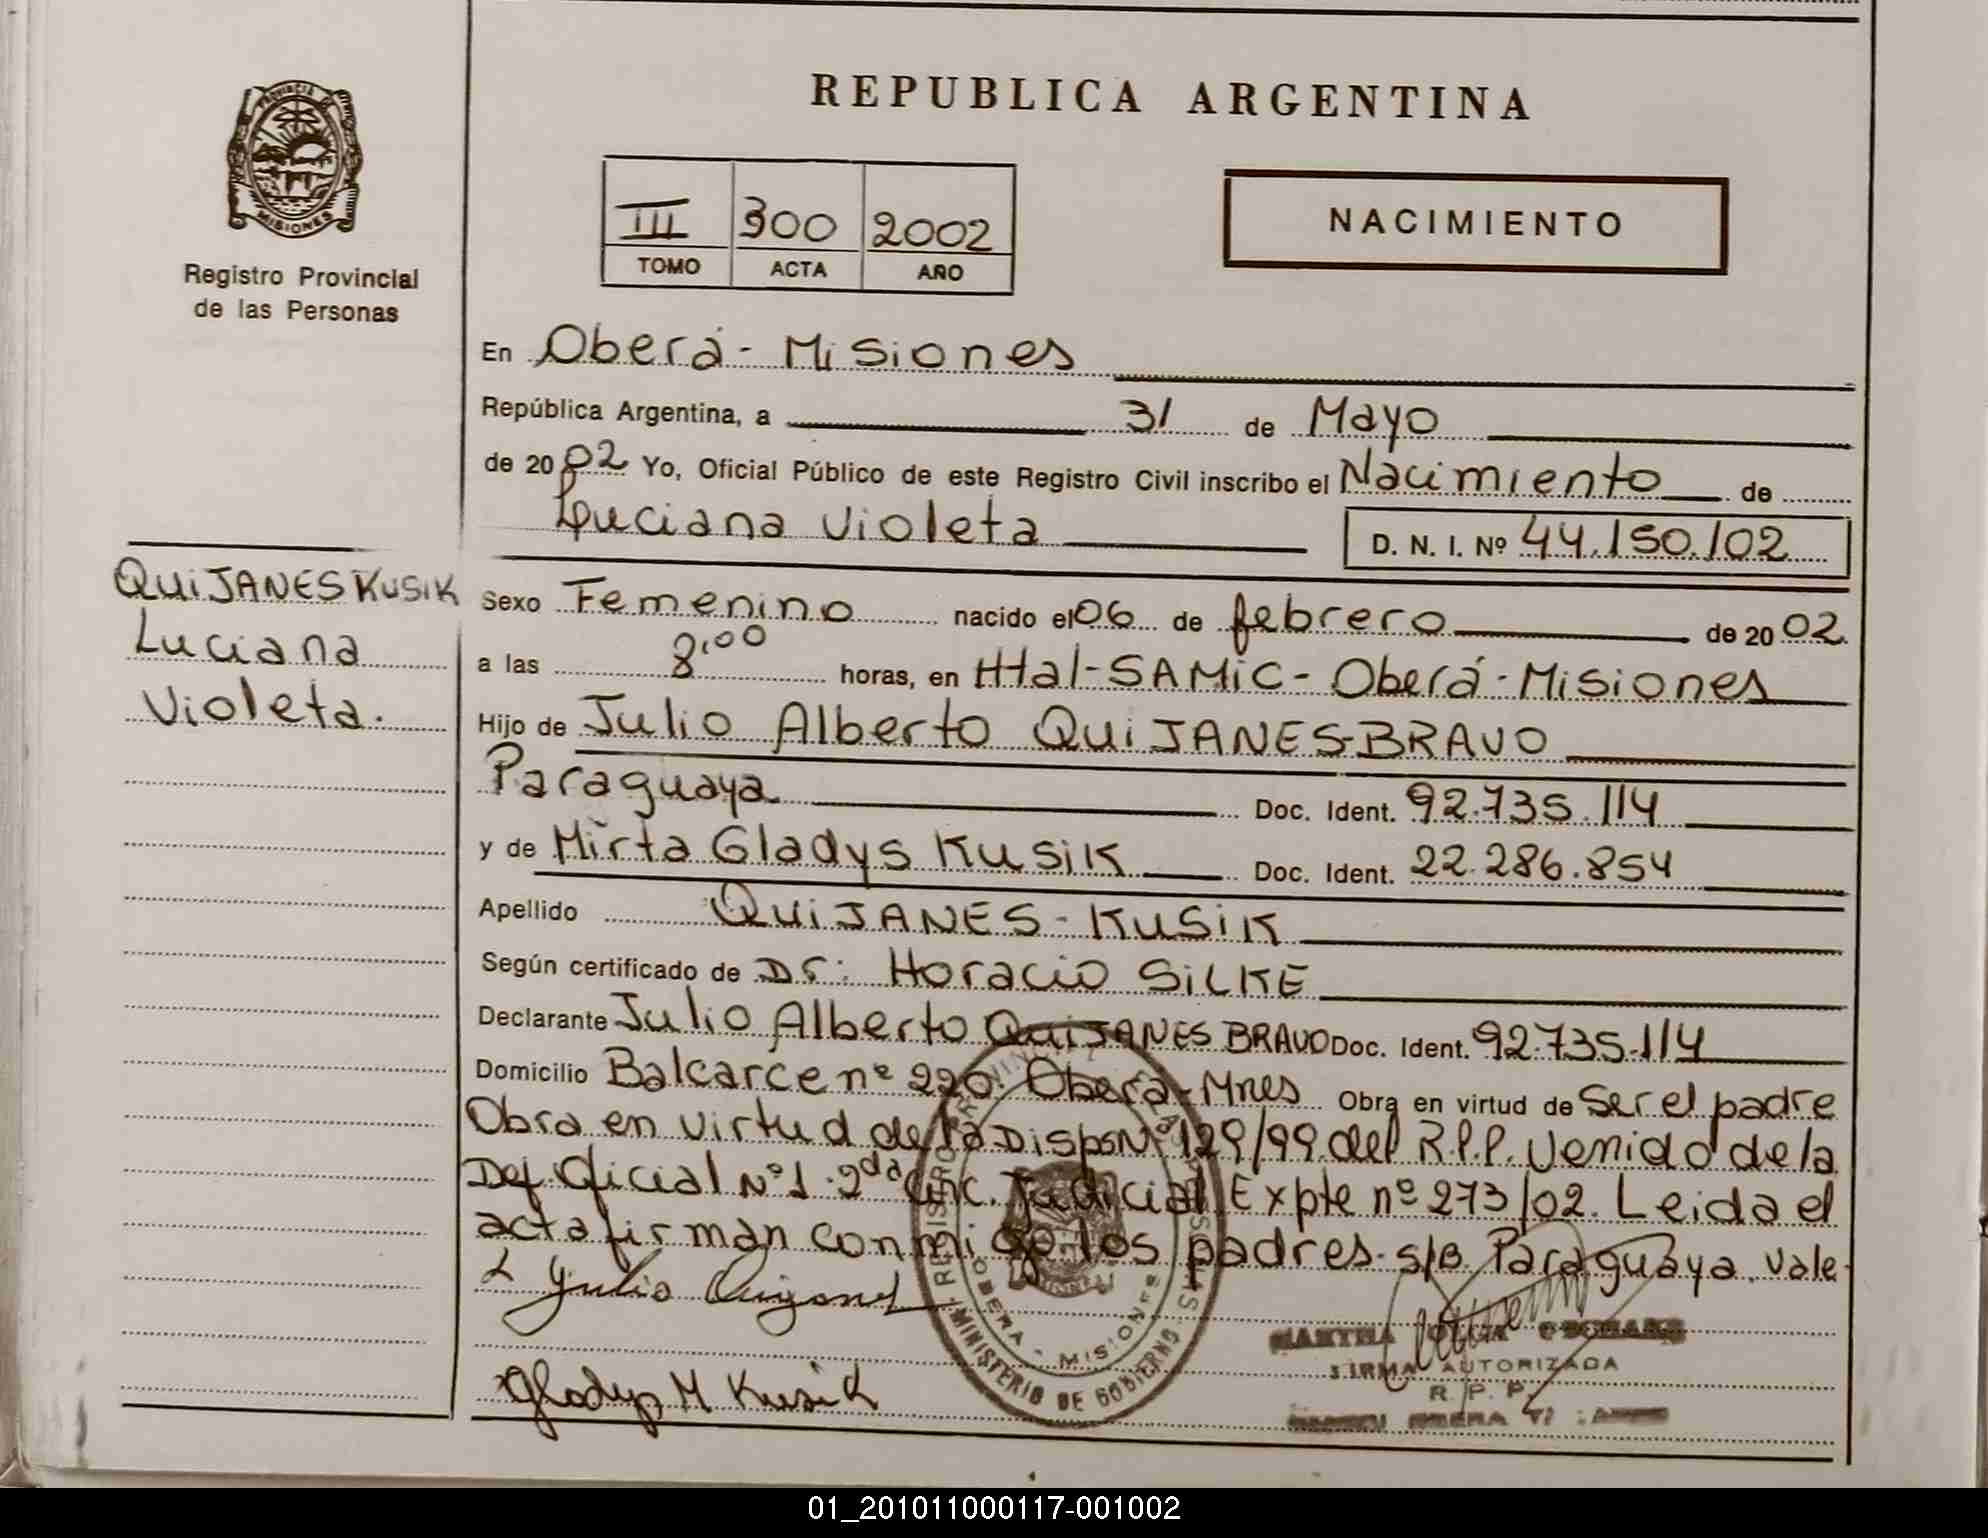 REPUBLICA ARGENTINA
PROVINCIA DE
MISIONES
Registro Provincial
de las Personas
III 300 2002
TOMO ACTA AÑO
NACIMIENTO
En Oberá - Misiones
República Argentina, a 31 de Mayo
de 2002 Yo, Oficial Público de este Registro Civil inscribo el Nacimiento de
Luciana Violeta D. N. I. Nº 44.150.102
QUIJANES KUSIK
Luciana
Violeta.
Sexo Femenino nacido el 06 de febrero de 2002.
a las 8,00 horas, en Htal-SAMIC - Oberá - Misiones
Hijo de Julio Alberto QUIJANES-BRAVO
Paraguaya Doc. Ident. 92.735.114
y de Mirta Gladys Kusik Doc. Ident. 22.286.854
Apellido QUIJANES - KUSIK
Según certificado de Dr: Horacio SILKE
Declarante Julio Alberto QUIJANES BRAVO Doc. Ident. 92.735.114
Domicilio Balcarce nº 220. Oberá - Mnes Obra en virtud de Ser el padre
Obra en virtud de la Dispo Nº 129/99 del R.P.P. Venido de la
Def. Oficial Nº 1. 2da Circ. Judicial Expte nº 273/02. Leida el
acta firman conmigo los padres. s/B. Paraguaya. Vale.
Julio Quijanes
Gladys M Kusik
REGISTRO PROVINCIAL DE LAS PERSONAS
OBERA - MISIONES
MINISTERIO DE GOBIERNO
MARTHA
FIRMA AUTORIZADA
R. P. P.
OBERA
01_201011000117-001002